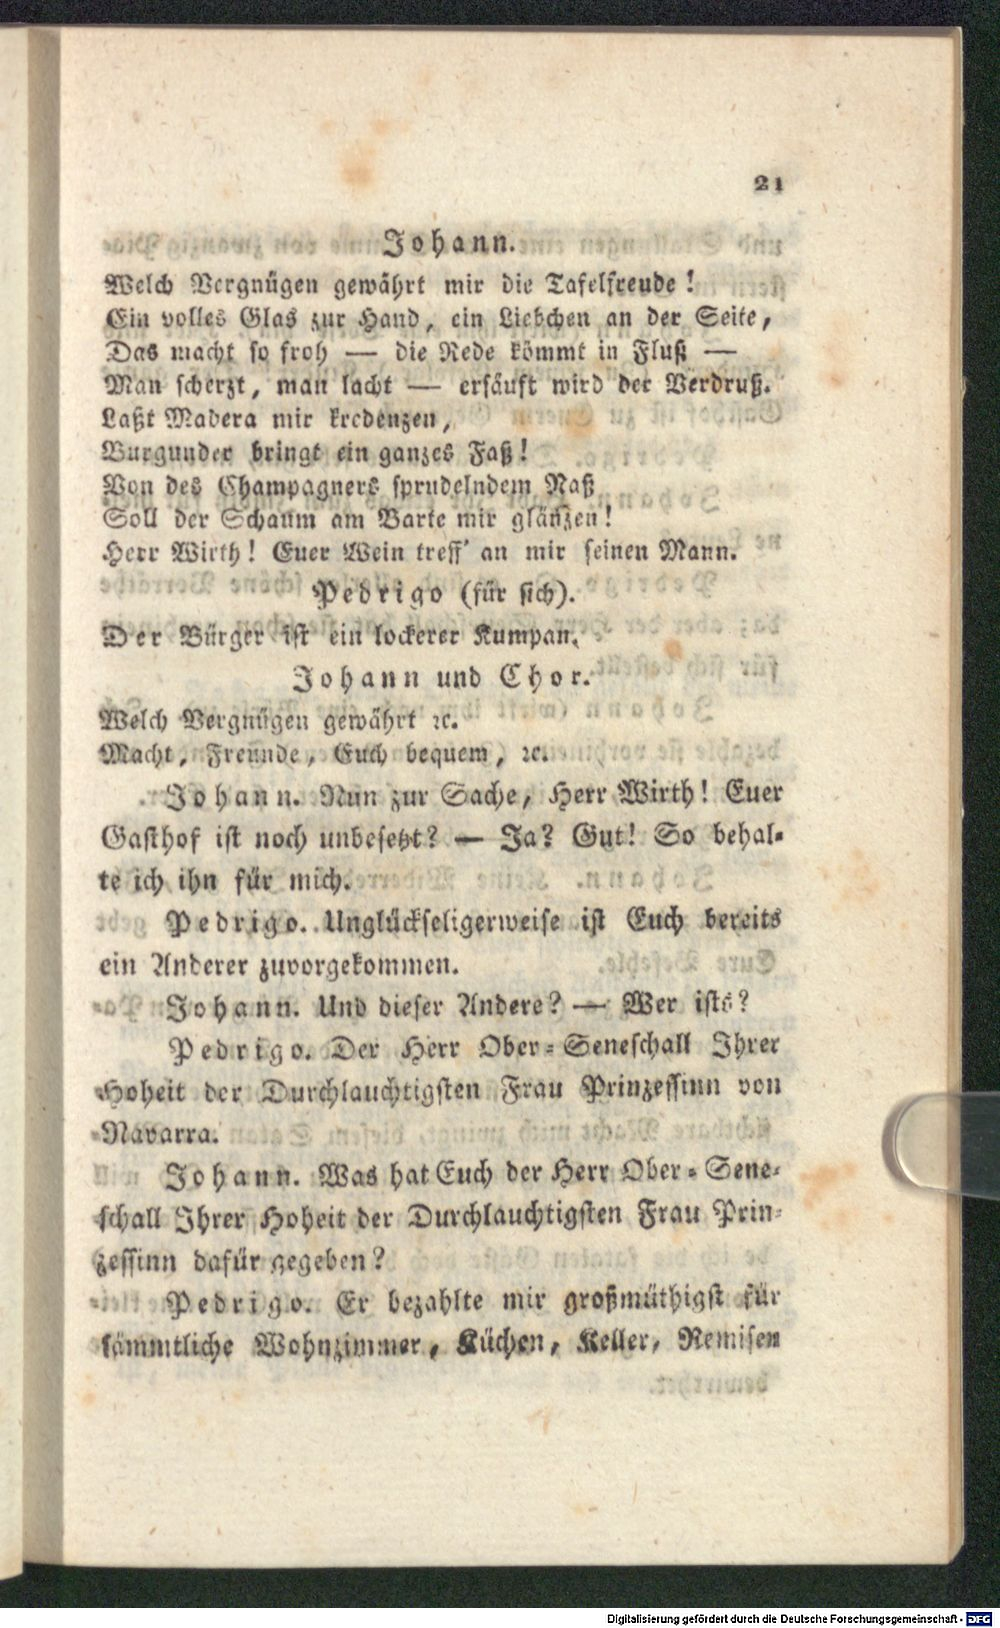 21
Johann.
Welch Vergnügen gewährt mir die Tafelfreude!
Ein volles Glas zur Hand, ein Liebchen an der Seite,
Das macht so froh — die Rede kömmt in Fluß —
Man scherzt, man lacht — ersäuft wird der Verdruß.
Laßt Madera mir kredenzen,
Burgunder bringt ein ganzes Faß!
Von des Champagners sprudelndem Naß
Soll der Schaum am Barte mir glänzen!
Herr Wirth! Euer Wein treff' an mir seinen Mann.
Pedrigo (für sich).
Der Bürger ist ein lockerer Kumpan.
Johann und Chor.
Welch Vergnügen gewährt ꝛc.
Macht, Freunde, Euch bequem, ꝛc.
Johann. Nun zur Sache, Herr Wirth! Euer
Gasthof ist noch unbesetzt? — Ja? Gut! So behal-
te ich ihn für mich.
Pedrigo. Unglückseligerweise ist Euch bereits
ein Anderer zuvorgekommen.
Johann. Und dieser Andere? — Wer ists?
Pedrigo. Der Herr Ober-Seneschall Ihrer
Hoheit der Durchlauchtigsten Frau Prinzessinn von
Navarra.
Johann. Was hat Euch der Herr Ober-Sene-
schall Ihrer Hoheit der Durchlauchtigsten Frau Prin-
zessinn dafür gegeben?
Pedrigo. Er bezahlte mir großmüthigst für
sämmtliche Wohnzimmer, Küchen, Keller, Remisen
Digitalisierung gefördert durch die Deutsche Forschungsgemeinschaft - DFG